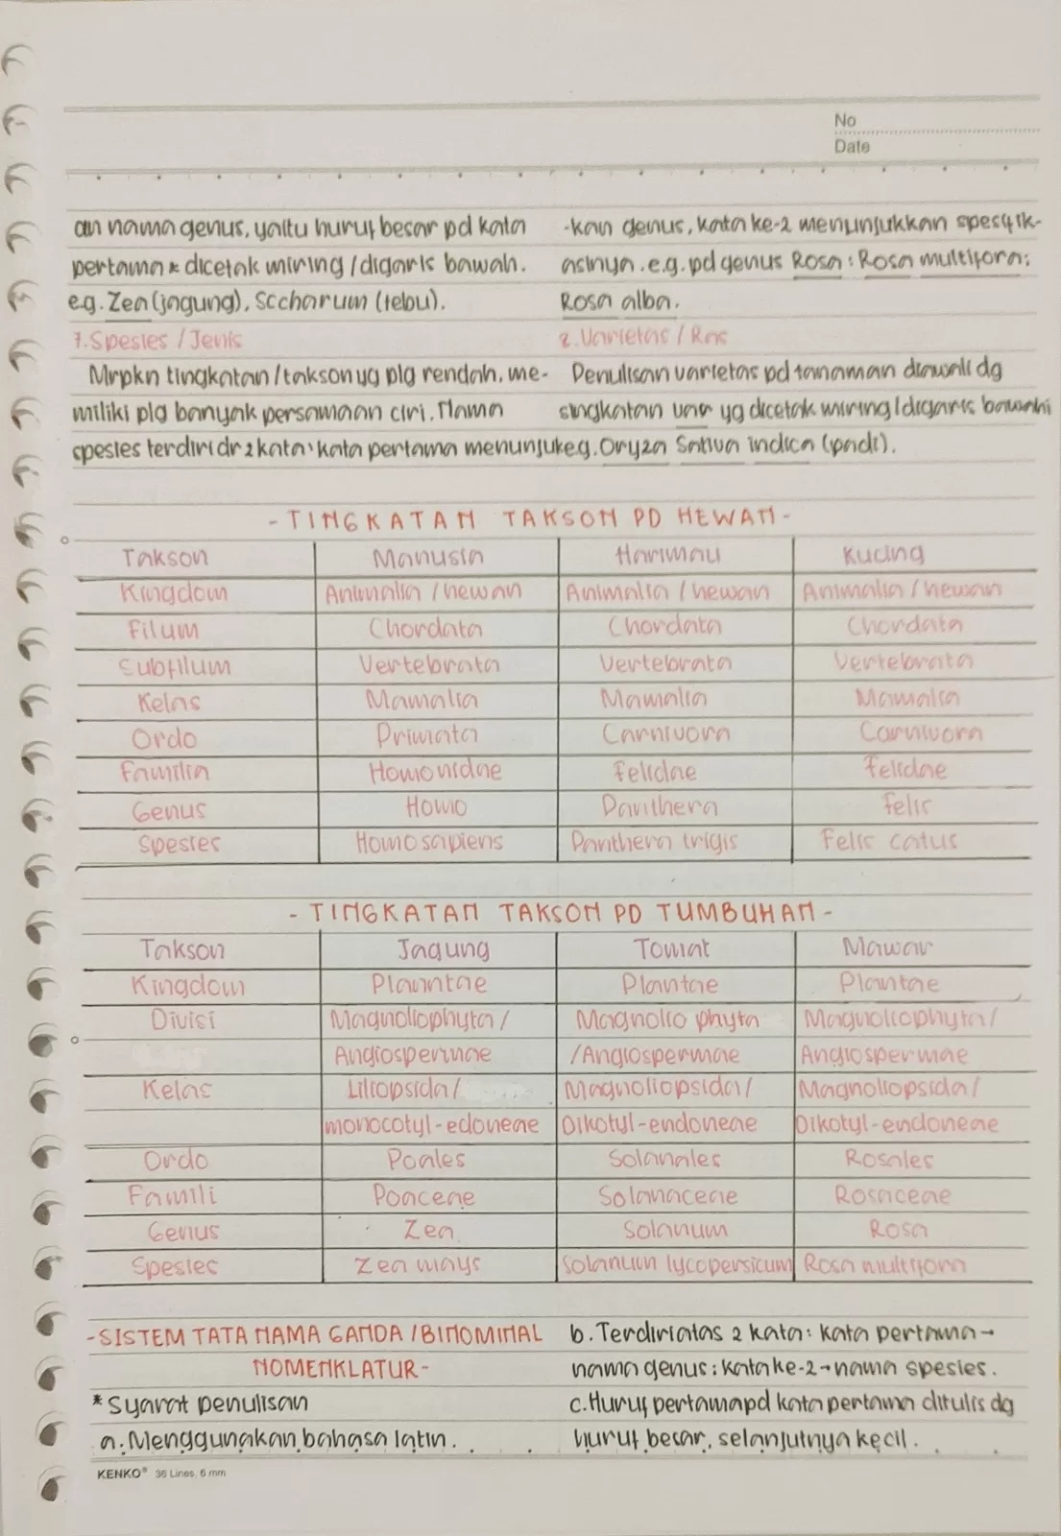 No
Date
an nama genus, yaitu huruf besar pd kata
pertama & dicetak miring / digaris bawah.
e.g. Zea (jagung), Sccharum (tebu).
7. Spesies / Jenis
Mrpkn tingkatan / takson yg plg rendah, me-
miliki plg banyak persamaan ciri. Nama
spesies terdiri dr 2 kata: kata pertama menunjuk
-kan genus, kata ke-2 menunjukkan spesifik-
asinya. e.g. pd genus Rosa : Rosa multifora;
Rosa alba.
8. Varietas / Ras
Penulisan varietas pd tanaman diawali dg
singkatan var yg dicetak miring / digaris bawahi
e.g. Oryza Sativa indica (padi).
- TINGKATAN TAKSON PD HEWAN -
Takson Manusia Harimau Kucing
Kingdom Animalia / hewan Animalia / hewan Animalia / hewan
Filum Chordata Chordata Chordata
Subfilum Vertebrata Vertebrata Vertebrata
Kelas Mamalia Mamalia Mamalia
Ordo Primata Carnivora Carnivora
Familia Homonidae Felidae Felidae
Genus Homo Panthera Felis
Spesies Homo sapiens Panthera trigis Felis catus
- TINGKATAN TAKSON PD TUMBUHAN -
Takson Jagung Tomat Mawar
Kingdom Planntae Plantae Plantae
Divisi Magnoliophyta / Magnolio phyta Magnoliophyta /
Angiospermae / Angiospermae Angiospermae
Kelas Liliopsida / Magnoliopsida / Magnoliopsida /
monocotyl-edoneae Dikotyl-endoneae Dikotyl-endoneae
Ordo Poales Solanales Rosales
Famili Poaceae Solanaceae Rosaceae
Genus Zea Solanum Rosa
Spesies Zea mays Solanum lycopersicum Rosa multifora
- SISTEM TATA NAMA GANDA / BINOMINAL
NOMENKLATUR -
* Syarat penulisan
a. Menggunakan bahasa latin.
b. Terdiri atas 2 kata: kata pertama →
nama genus; kata ke-2 → nama spesies.
c. Huruf pertama pd kata pertama ditulis dg
huruf besar, selanjutnya kecil.
KENKO® 36 Lines, 6 mm